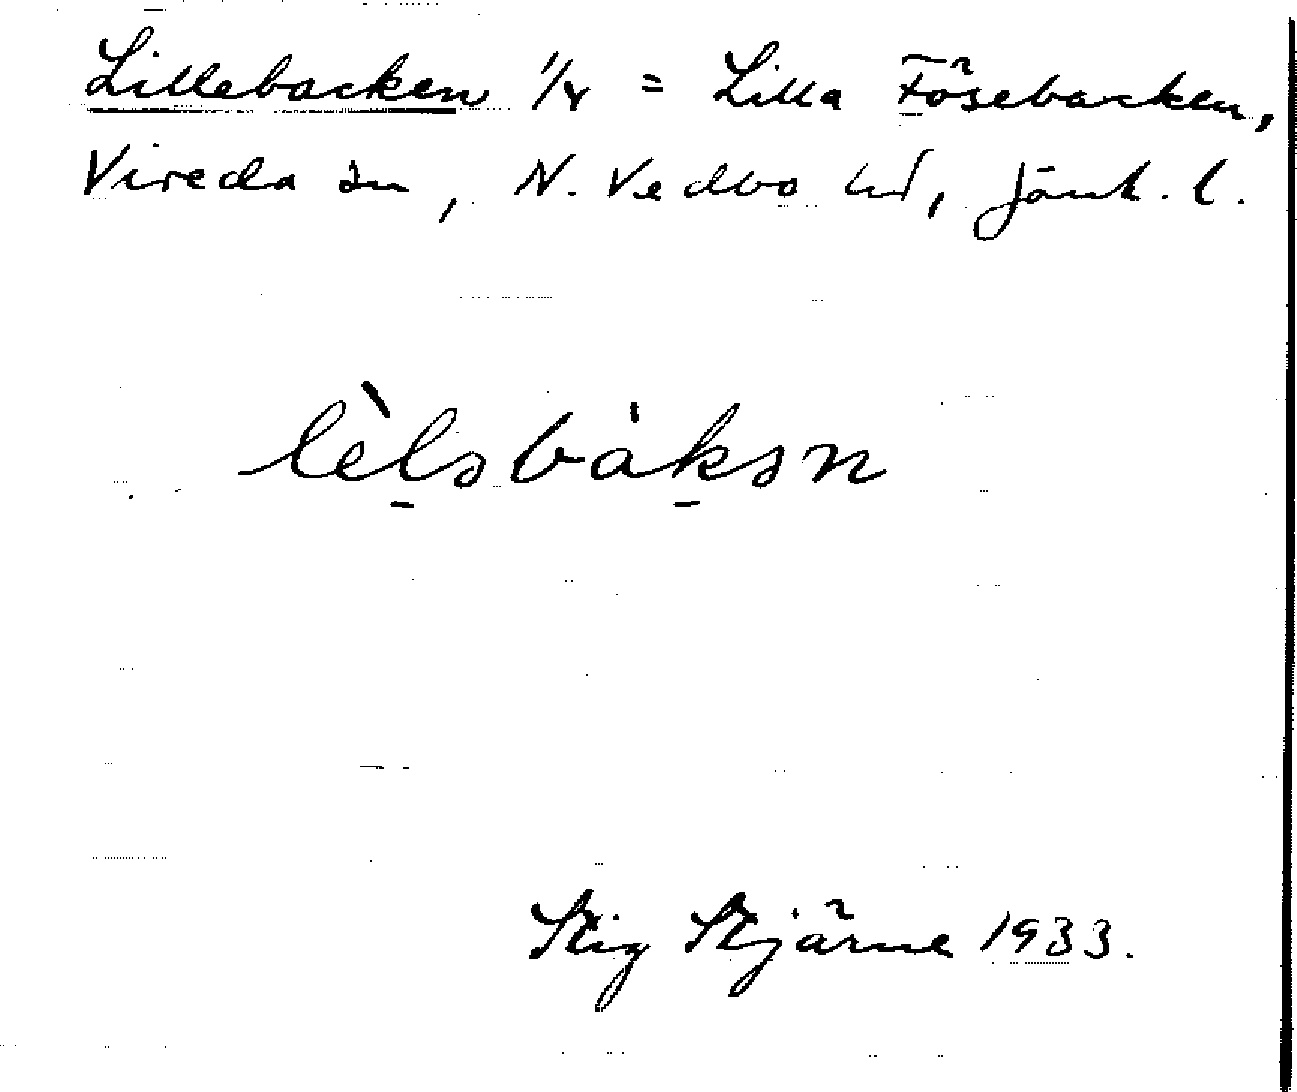 Lillebacken 1/4 = Lilla Fösebacken,
Vireda sn, N. Vedbo hd, Jönk. l.
lèl̠əbákə̠n
Stig Stjärne 1933.